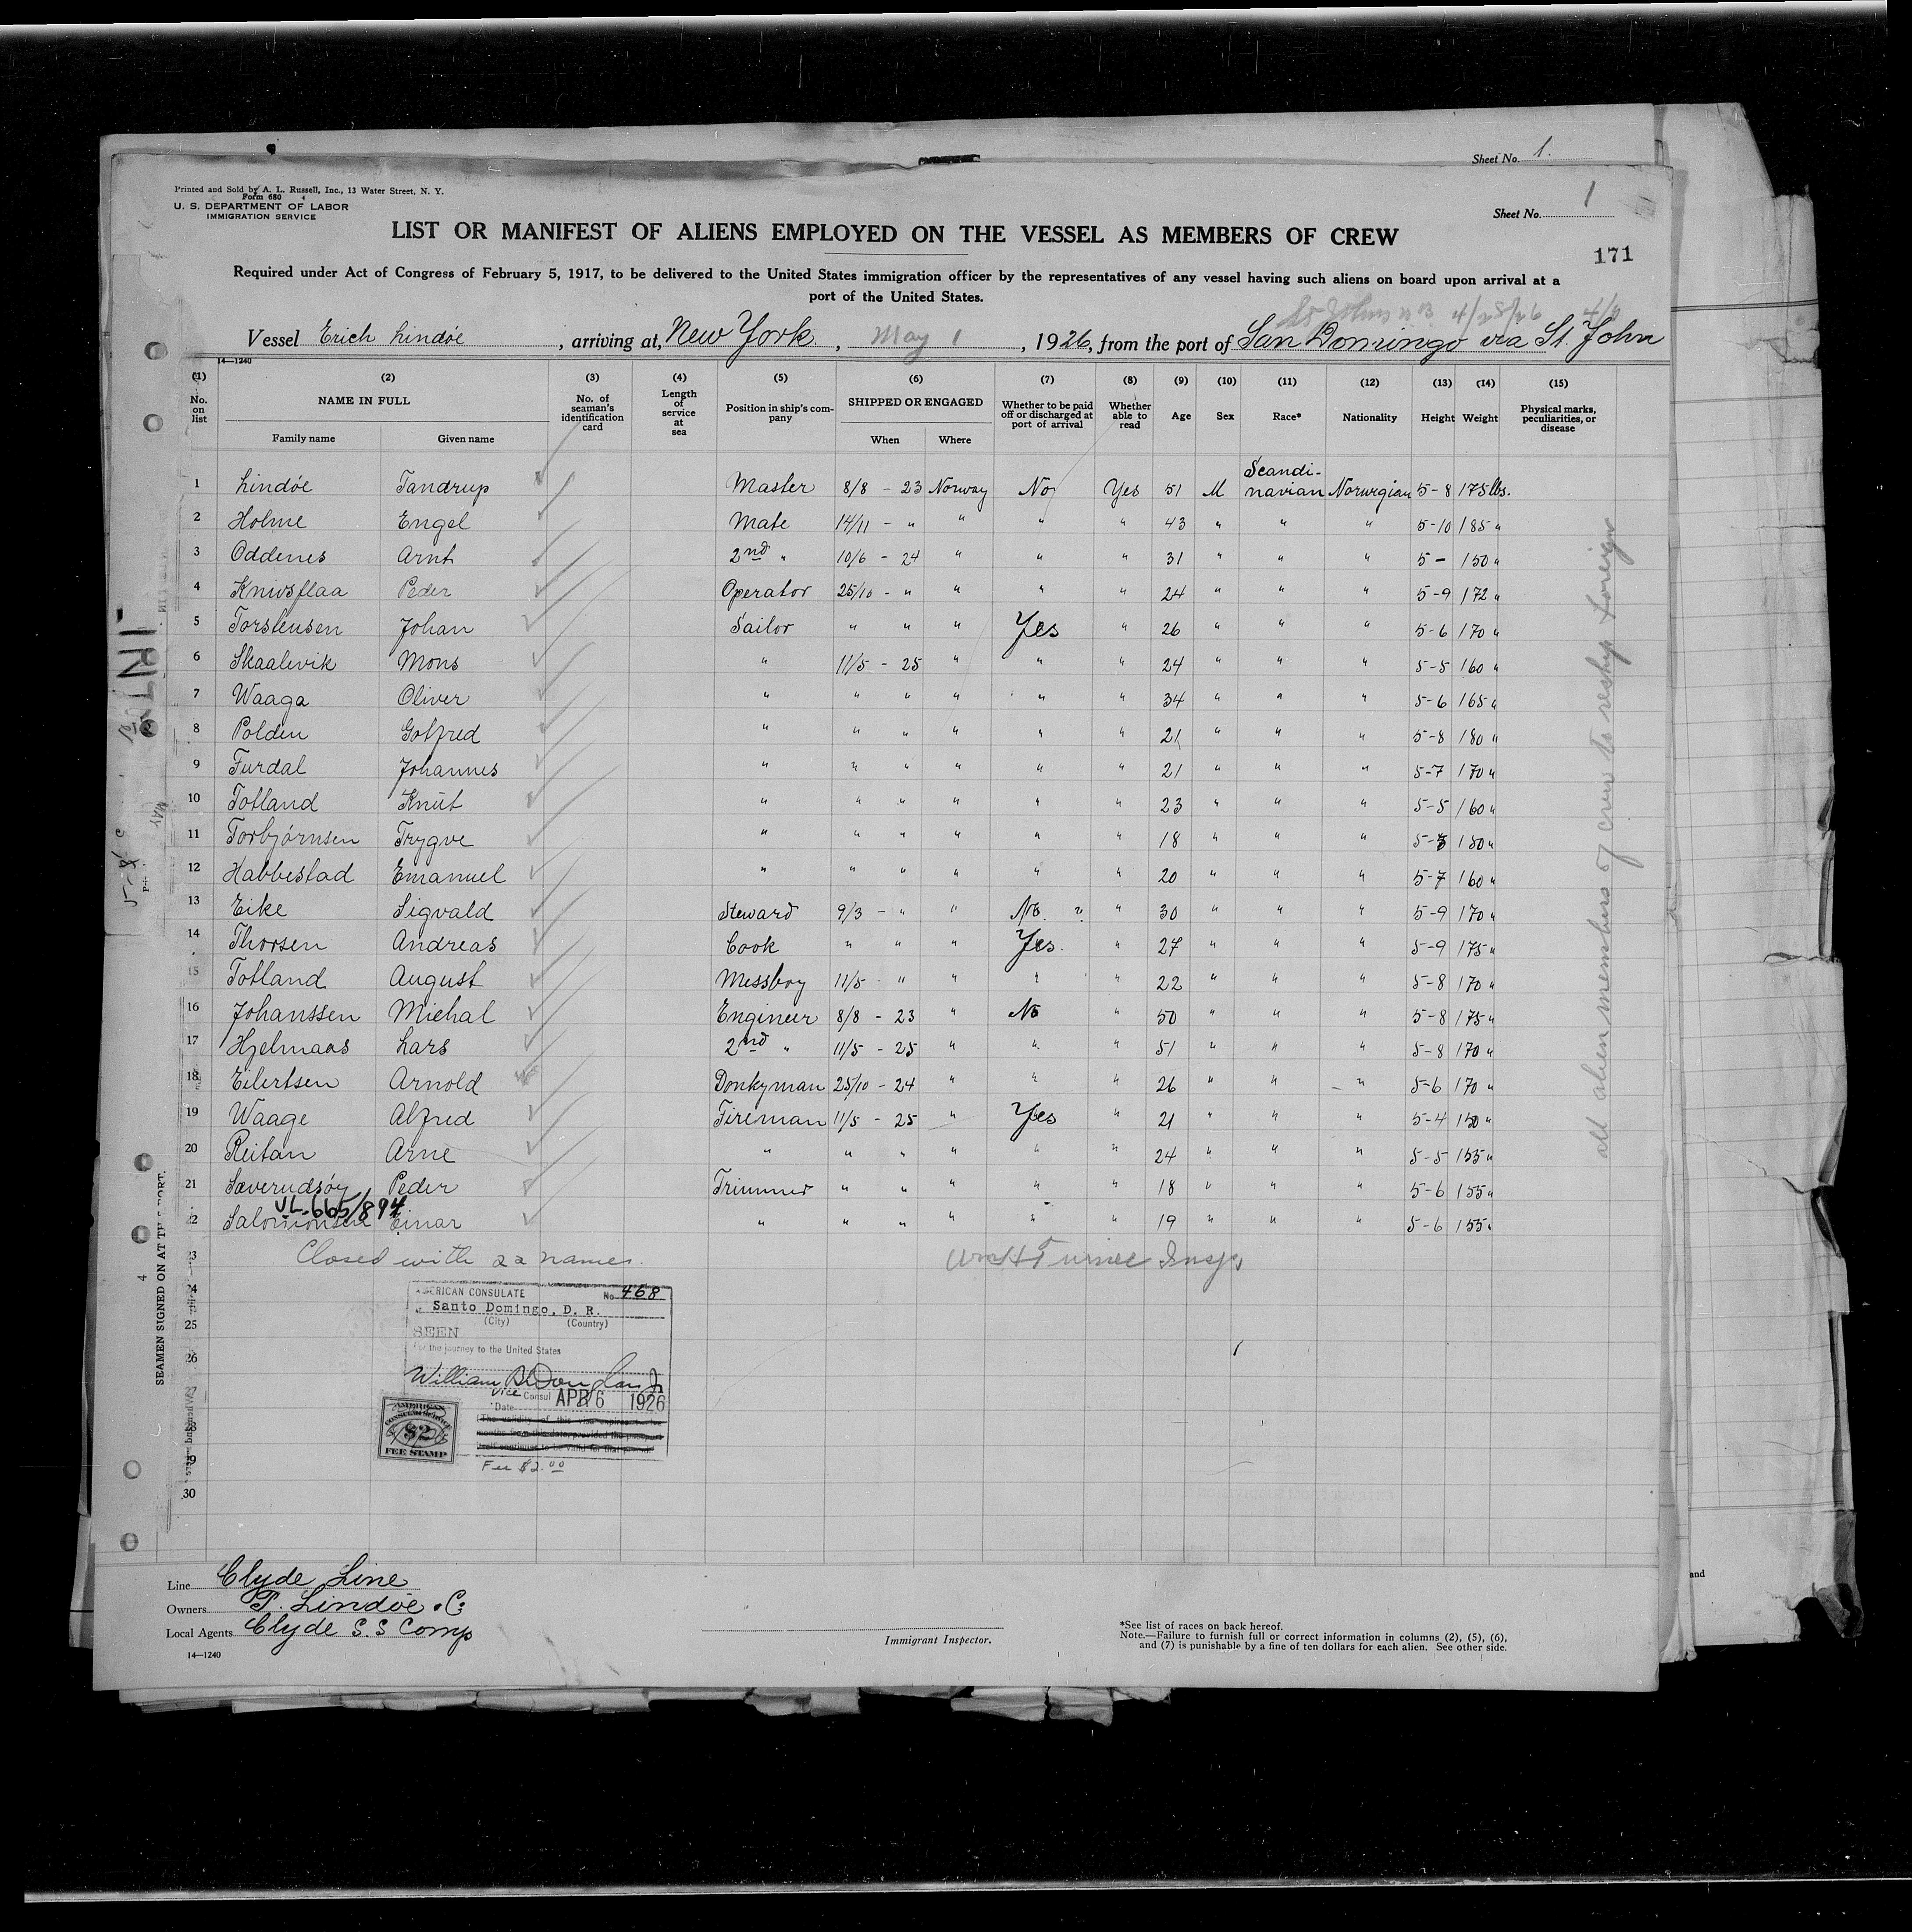 Sheet No. 1.
Printed and Sold by A. L. Russell, Inc., 13 Water Street, N. Y.
Form 680
U. S. DEPARTMENT OF LABOR
IMMIGRATION SERVICE
Sheet No. 1
LIST OR MANIFEST OF ALIENS EMPLOYED ON THE VESSEL AS MEMBERS OF CREW
171
Required under Act of Congress of February 5, 1917, to be delivered to the United States immigration officer by the representatives of any vessel having such aliens on board upon arrival at a
port of the United States.
St John N B 4/28/26
Vessel Erich Lindöe, arriving at, New York, May 1, 1926, from the port of San Domingo via St. John
14—1240
(1) (2) (3) (4) (5) (6) (7) (8) (9) (10) (11) (12) (13) (14) (15)
No. on list NAME IN FULL No. of seaman's identification card Length of service at sea Position in ship's company SHIPPED OR ENGAGED Whether to be paid off or discharged at port of arrival Whether able to read Age Sex Race* Nationality Height Weight Physical marks, peculiarities, or disease
Family name Given name When Where
1 Lindöe Tandrup Master 8/8 - 23 Norway No Yes 51 M Scandi-navian Norwegian 5-8 175 lbs.
2 Holme Engel Mate 14/11 - " " " " 43 " " " 5-10 185 "
3 Oddenes Arnt 2nd " 10/6 - 24 " " " 31 " " " 5- 150 "
4 Knivsflaa Peder Operator 25/10 - " " " " 24 " " " 5-9 172 "
5 Torstensen Johan Sailor " " " Yes " 26 " " " 5-6 170 "
6 Skaalevik Mons " 11/5 - 25 " " " 24 " " " 5-5 160 "
7 Waaga Oliver " " " " " " 34 " " " 5-6 165 "
8 Polden Gotfred " " " " " " 21 " " " 5-8 180 "
9 Furdal Johannes " " " " " " 21 " " " 5-7 170 "
10 Totland Knut " " " " " " 23 " " " 5-5 160 "
11 Torbjörnsen Trygve " " " " " " 18 " " " 5- 150 "
12 Habbestad Emanuel " " " " " " 20 " " " 5-7 160 "
13 Eike Sigvald Steward 9/3 - " " No. " " 30 " " " 5-9 170 "
14 Thorsen Andreas Cook " " " Yes. " 27 " " " 5-9 175 "
15 Totland August Messboy 11/5 - " " " " 22 " " " 5-8 170 "
16 Johanssen Michal Engineer 8/8 - 23 " No " 50 " " " 5-8 175 "
17 Hjelmaas Lars 2nd " 11/5 - 25 " " " 51 " " " 5-8 170 "
18 Eilertsen Arnold Donkyman 25/10 - 24 " " " 26 " " " 5-6 170 "
19 Waage Alfred Fireman 11/5 - 25 " Yes " 21 " " " 5-4 150 "
20 Reitan Arne " " " " " " 24 " " " 5-5 155 "
21 Sæverudsöy Peder Trimmer " " " " " 18 " " " 5-6 155 "
UL-665/894
22 Salomonsen Einar " " " " " " 19 " " " 5-6 155 "
23 Closed with 22 names. Wm H Turner Insp
24
25
26
30
all alien members of crew to reship foreign
AMERICAN CONSULATE No. 468
Santo Domingo, D. R.
(City) (Country)
SEEN
For the journey to the United States
Vice Consul
Date APR 6 1926
The validity of this visa expires twelve
months from this date, provided the passport
itself continues to be valid for that period.
AMERICAN
CONSULAR SERVICE
$2
FEE STAMP
Fee $2.00
SEAMEN SIGNED ON AT THIS PORT.
MAY
Line Clyde Line
Owners T. Lindöe
Local Agents Clyde S.S Comp
14—1240
Immigrant Inspector.
*See list of races on back hereof.
Note.—Failure to furnish full or correct information in columns (2), (5), (6),
and (7) is punishable by a fine of ten dollars for each alien. See other side.
and